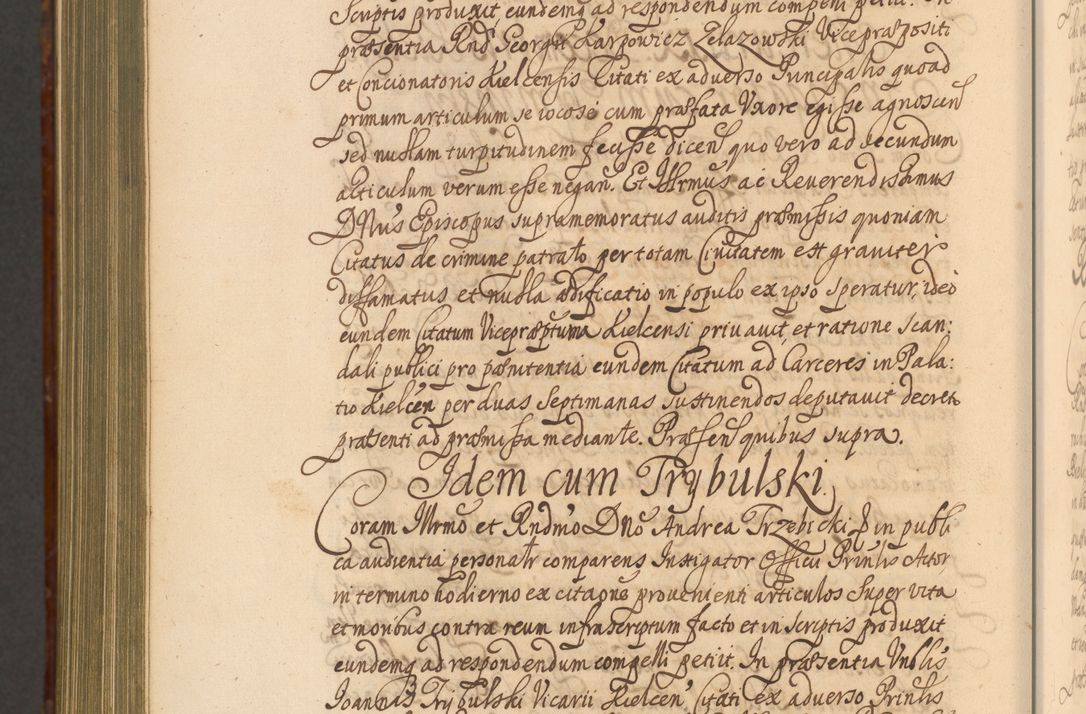 Scriptis produxit, eundemq ad respondendum compelli petiit. In
præsentia Rnd Georgii Karpowicz Zelazowski Vicepræpositi
et Concionatoris Kielcensis Citati ex adverso Principalis quoad
primum articulum se iocose cum præfata Uxore egisse agnoscen
sed nullam turpitudinem fecisse dicen quo vero ad secundum
articulum verum esse negan. Et Illrmus ac Reverendissimus
DNus Episcopus supramemoratus auditis præmissis quoniam
Citatus de crimine patrato per totam Civitatem est graviter
diffamatus et nulla ædificatio in populo ex ipso speratur, ideo
eundem Citatum Vicepræptum Kielcensi privavit, et ratione scan:
dali publici pro pænitentia eundem Citatum ad Carceres in Pala:
tio Kielcen per duas Septimanas sustinendos deputavit decreto
præsenti ad præmissa mediante. Præsen quibus supra.
Idem cum Trybulski.
Coram Illrmo et Rndmo DNo Andrea Trzebicki, in publi
ca audientia personalr comparens Instigator Officii Prinlis Actor
in termino hodierno ex citaone provenienti articulos super vita
et moribus contra reum infrascriptum facto et in scriptis produxit
eundemq ad respondendum compelli petiit. In præsentia Vnblis
Joannis Trybulski Vicarii Kielcen Citati ex adverso Prinlis